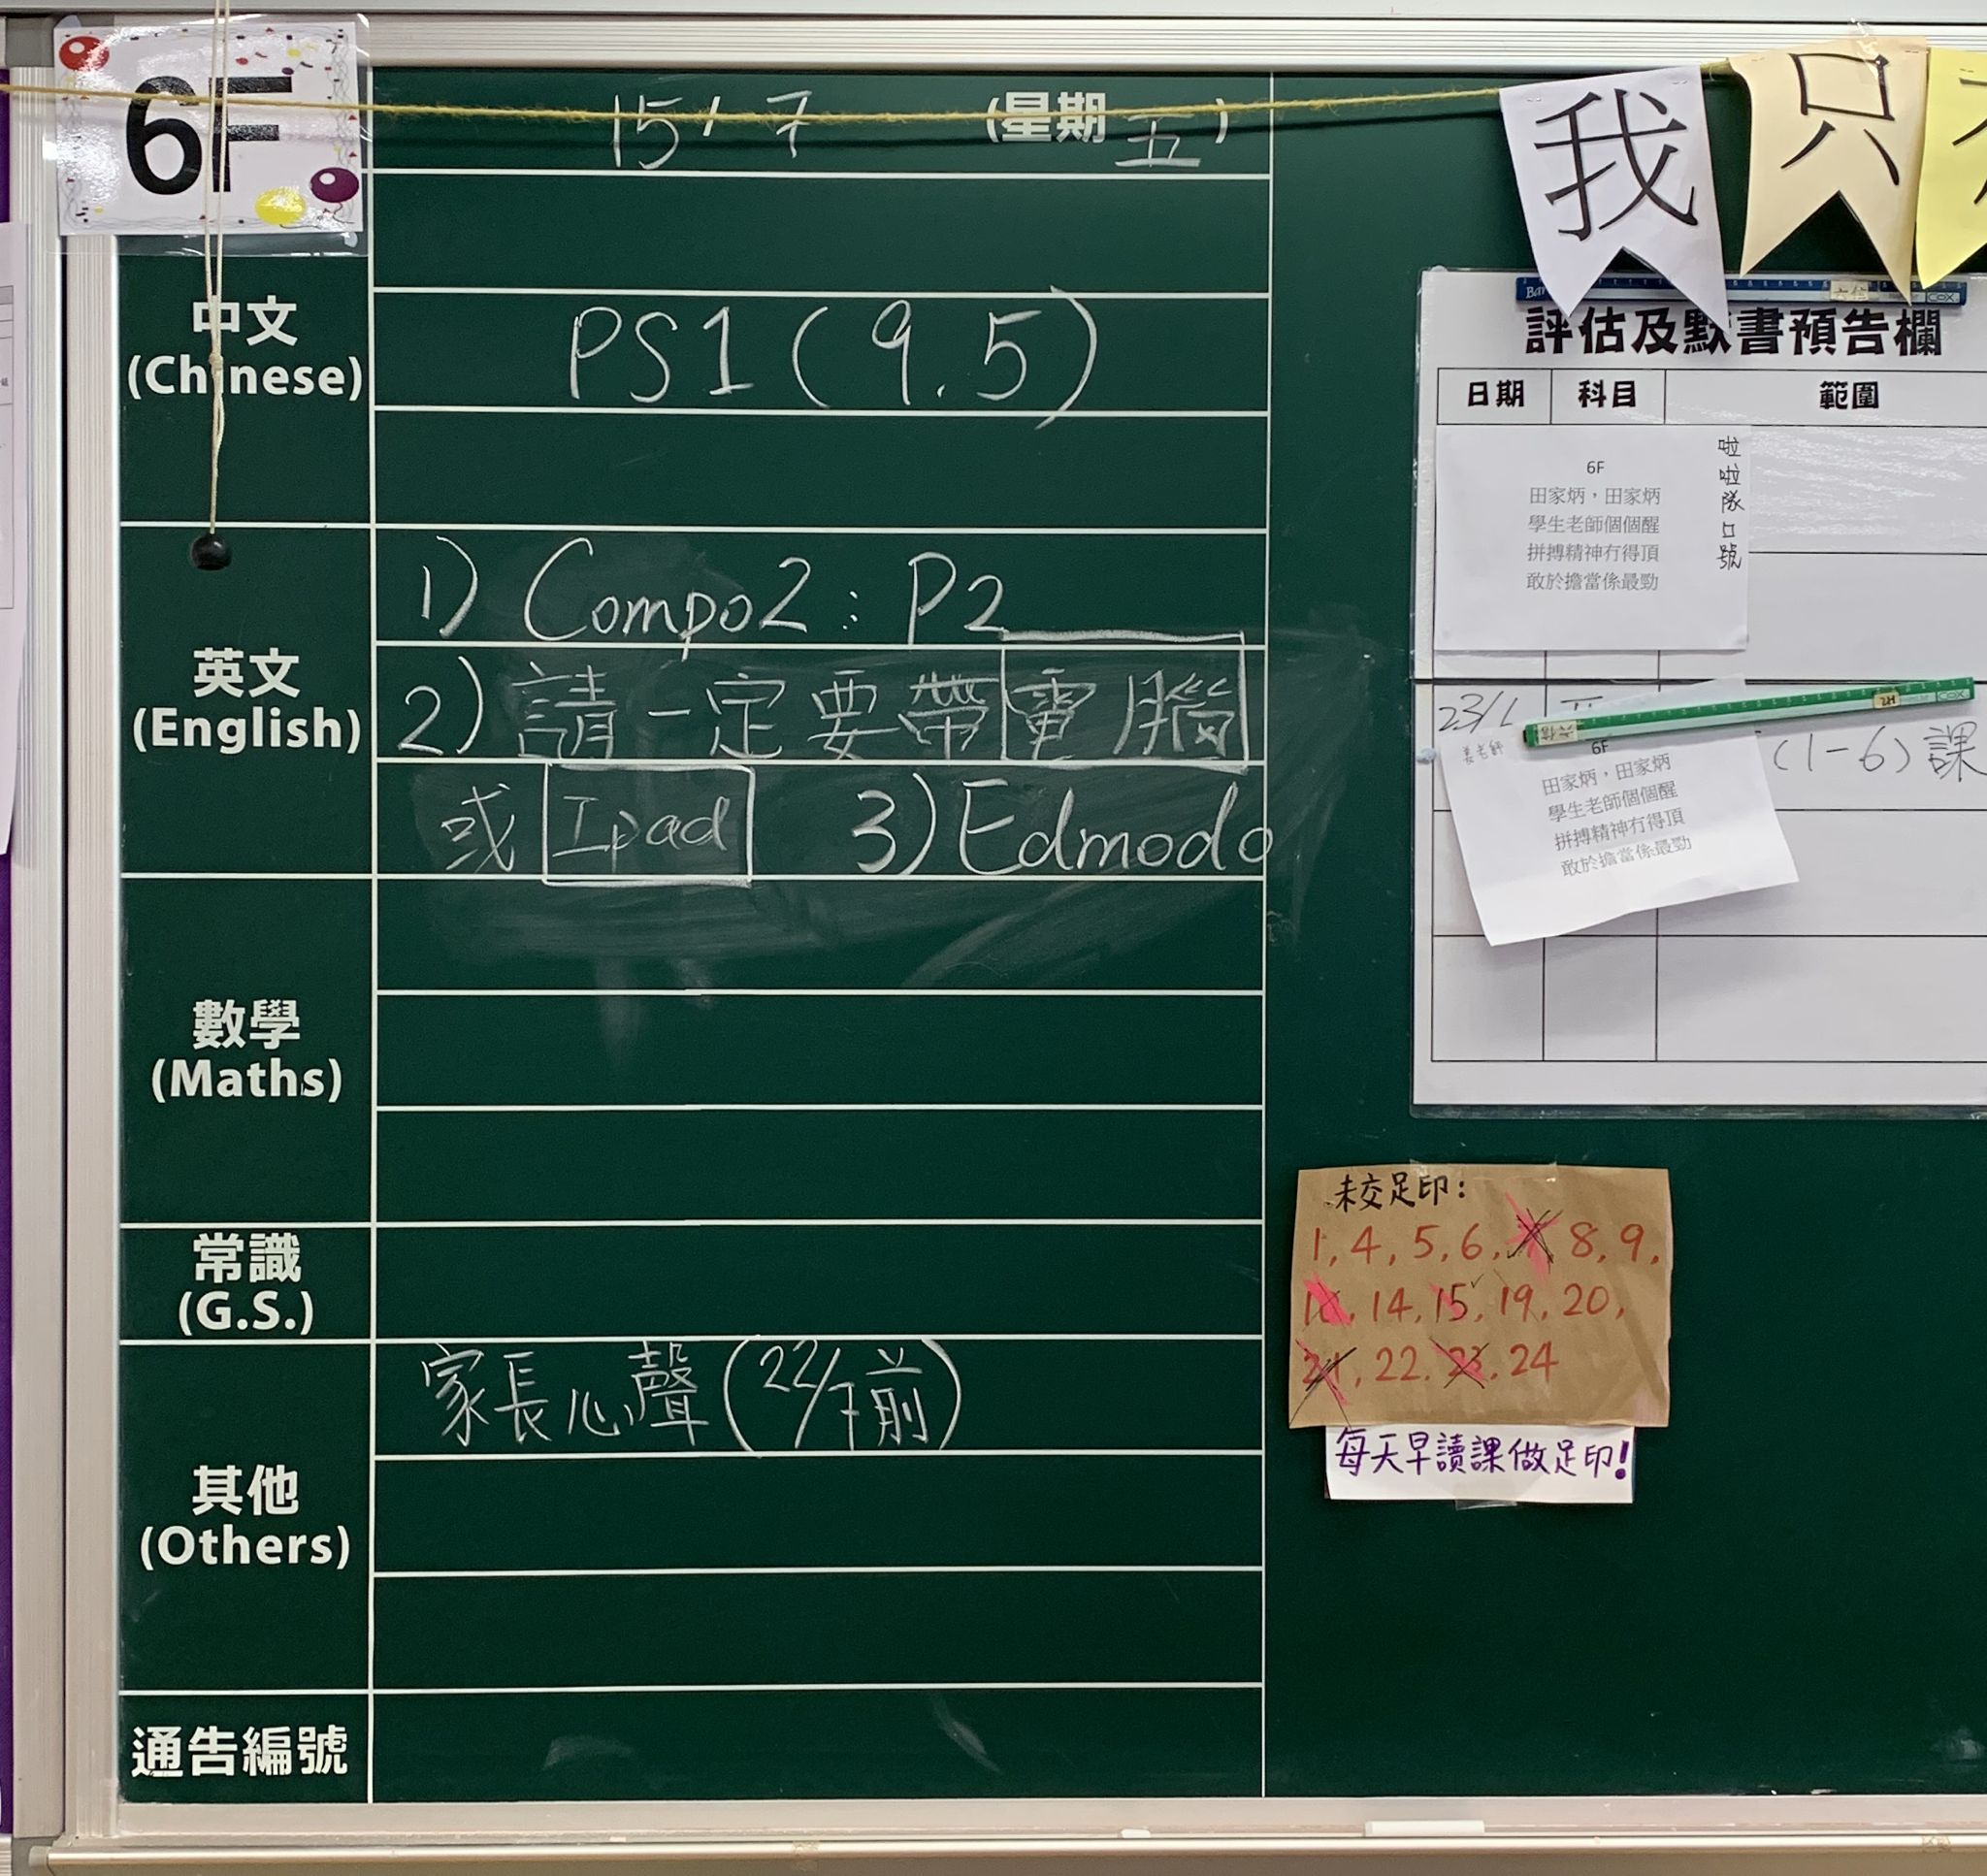 6F
15/7 (星期五)
中文
(Chinese)
PS1 (9.5)
英文
(English)
1) Compo2 : P2
2) 請一定要帶電腦
或 Ipad 3) Edmodo
數學
(Maths)
常識
(G.S.)
其他
(Others)
家長心聲 (22/7前)
通告編號
我只
評估及默書預告欄
日期 科目 範圍
啦啦隊口號
6F
田家炳，田家炳
學生老師個個醒
拼搏精神冇得頂
敢於擔當係最勁
(1-6) 課
6F
田家炳，田家炳
學生老師個個醒
拼搏精神冇得頂
敢於擔當係最勁
未交足印：
1, 4, 5, 6, 8, 9,
14, 15, 19, 20,
21, 22, 23, 24
每天早讀課做足印！